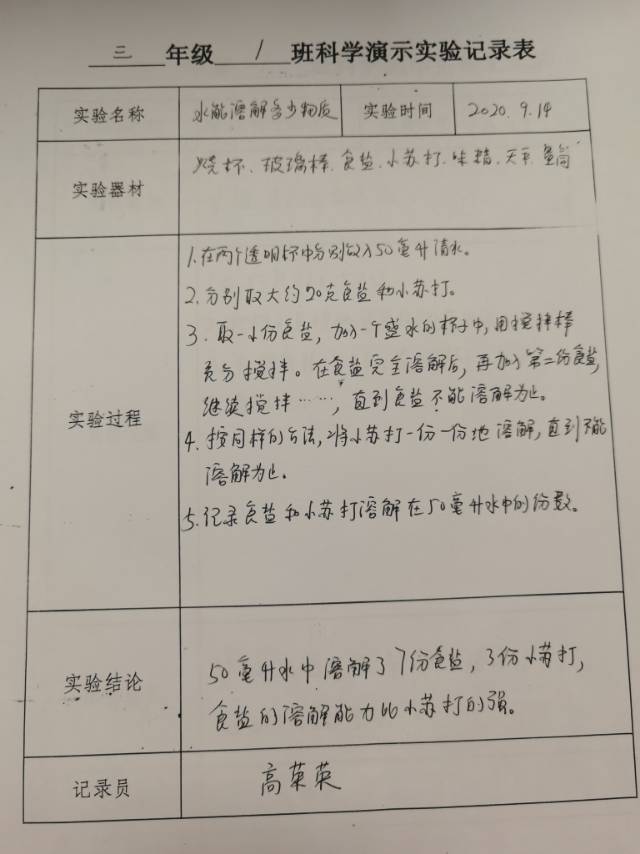 三 年级 1 班科学演示实验记录表
实验名称 水能溶解多少物质 实验时间 2020.9.14
实验器材 烧杯、玻璃棒、食盐、小苏打、味精、天平、量筒
实验过程
1.在两个透明杯中分别放入50毫升清水。
2.分别取大约20克食盐和小苏打。
3.取一小份食盐,加入一个盛水的杯子中,用搅拌棒
充分搅拌。在食盐完全溶解后,再加入第二份食盐,
继续搅拌……,直到食盐不能溶解为止。
4.按同样的方法,将小苏打一份一份地溶解,直到不能
溶解为止。
5.记录食盐和小苏打溶解在50毫升水中的份数。
实验结论
50毫升水中溶解了7份食盐,3份小苏打,
食盐的溶解能力比小苏打的强。
记录员 高荣英